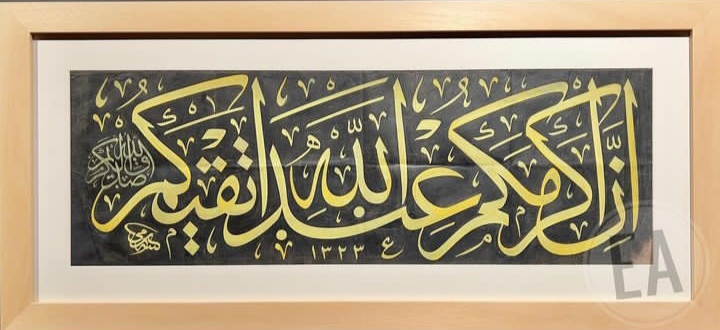 إن أكرمكم عند الله أتقيكم
صدق الله الأكرم
ع ١٣٢٣
EA